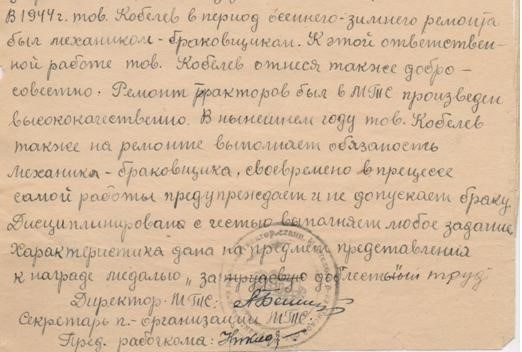 В 1944 г. тов. Кобелев в период осеннего-зимнего ремонта
был механиком-браковщикам. К этой ответствен-
ной работе тов. Кобелев отнесся также добро-
совестно. Ремонт тракторов был в МТС произведен
высококачественно. В нынешнем году тов. Кобелев
также на ремонте выполняет обязаность
механика-браковщика, своевремено в прецессе
самой работы предупреждает и не допускает браку.
Дисциплинировано с честью выпалняет любое задание
Характеристика дана на предмет представления
к награде медалью „за труд
Директор МТС:
Секретарь п.-организации МТС:
Пред. рабочкома: